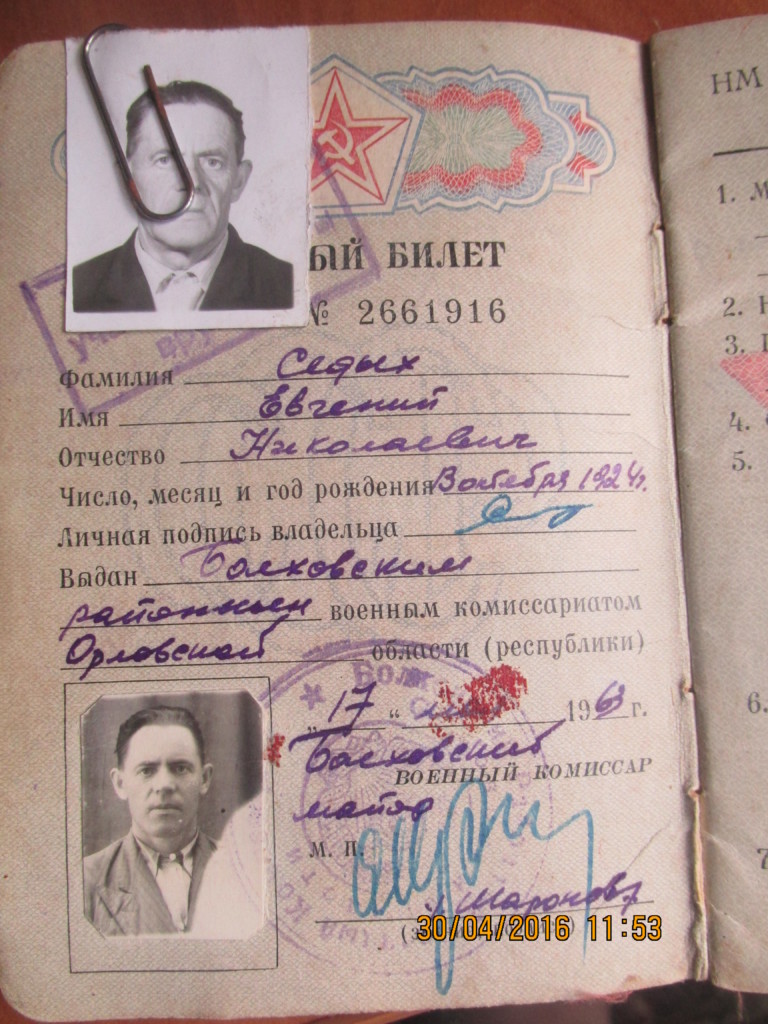 ЫЙ БИЛЕТ
№ 2661916
Фамилия Седых
Имя Евгений
Отчество Николаевич
Число, месяц и год рождения 3 октября 1924г.
Личная подпись владельца
Выдан Болховским
районным военным комиссариатом
Орловской области (республики)
„17“ 1963 г.
Болховский
ВОЕННЫЙ КОМИССАР
майор
М. П.
30/04/2016 11:53
НМ
1. М
2. Н
3.
4.
5.
6.
7